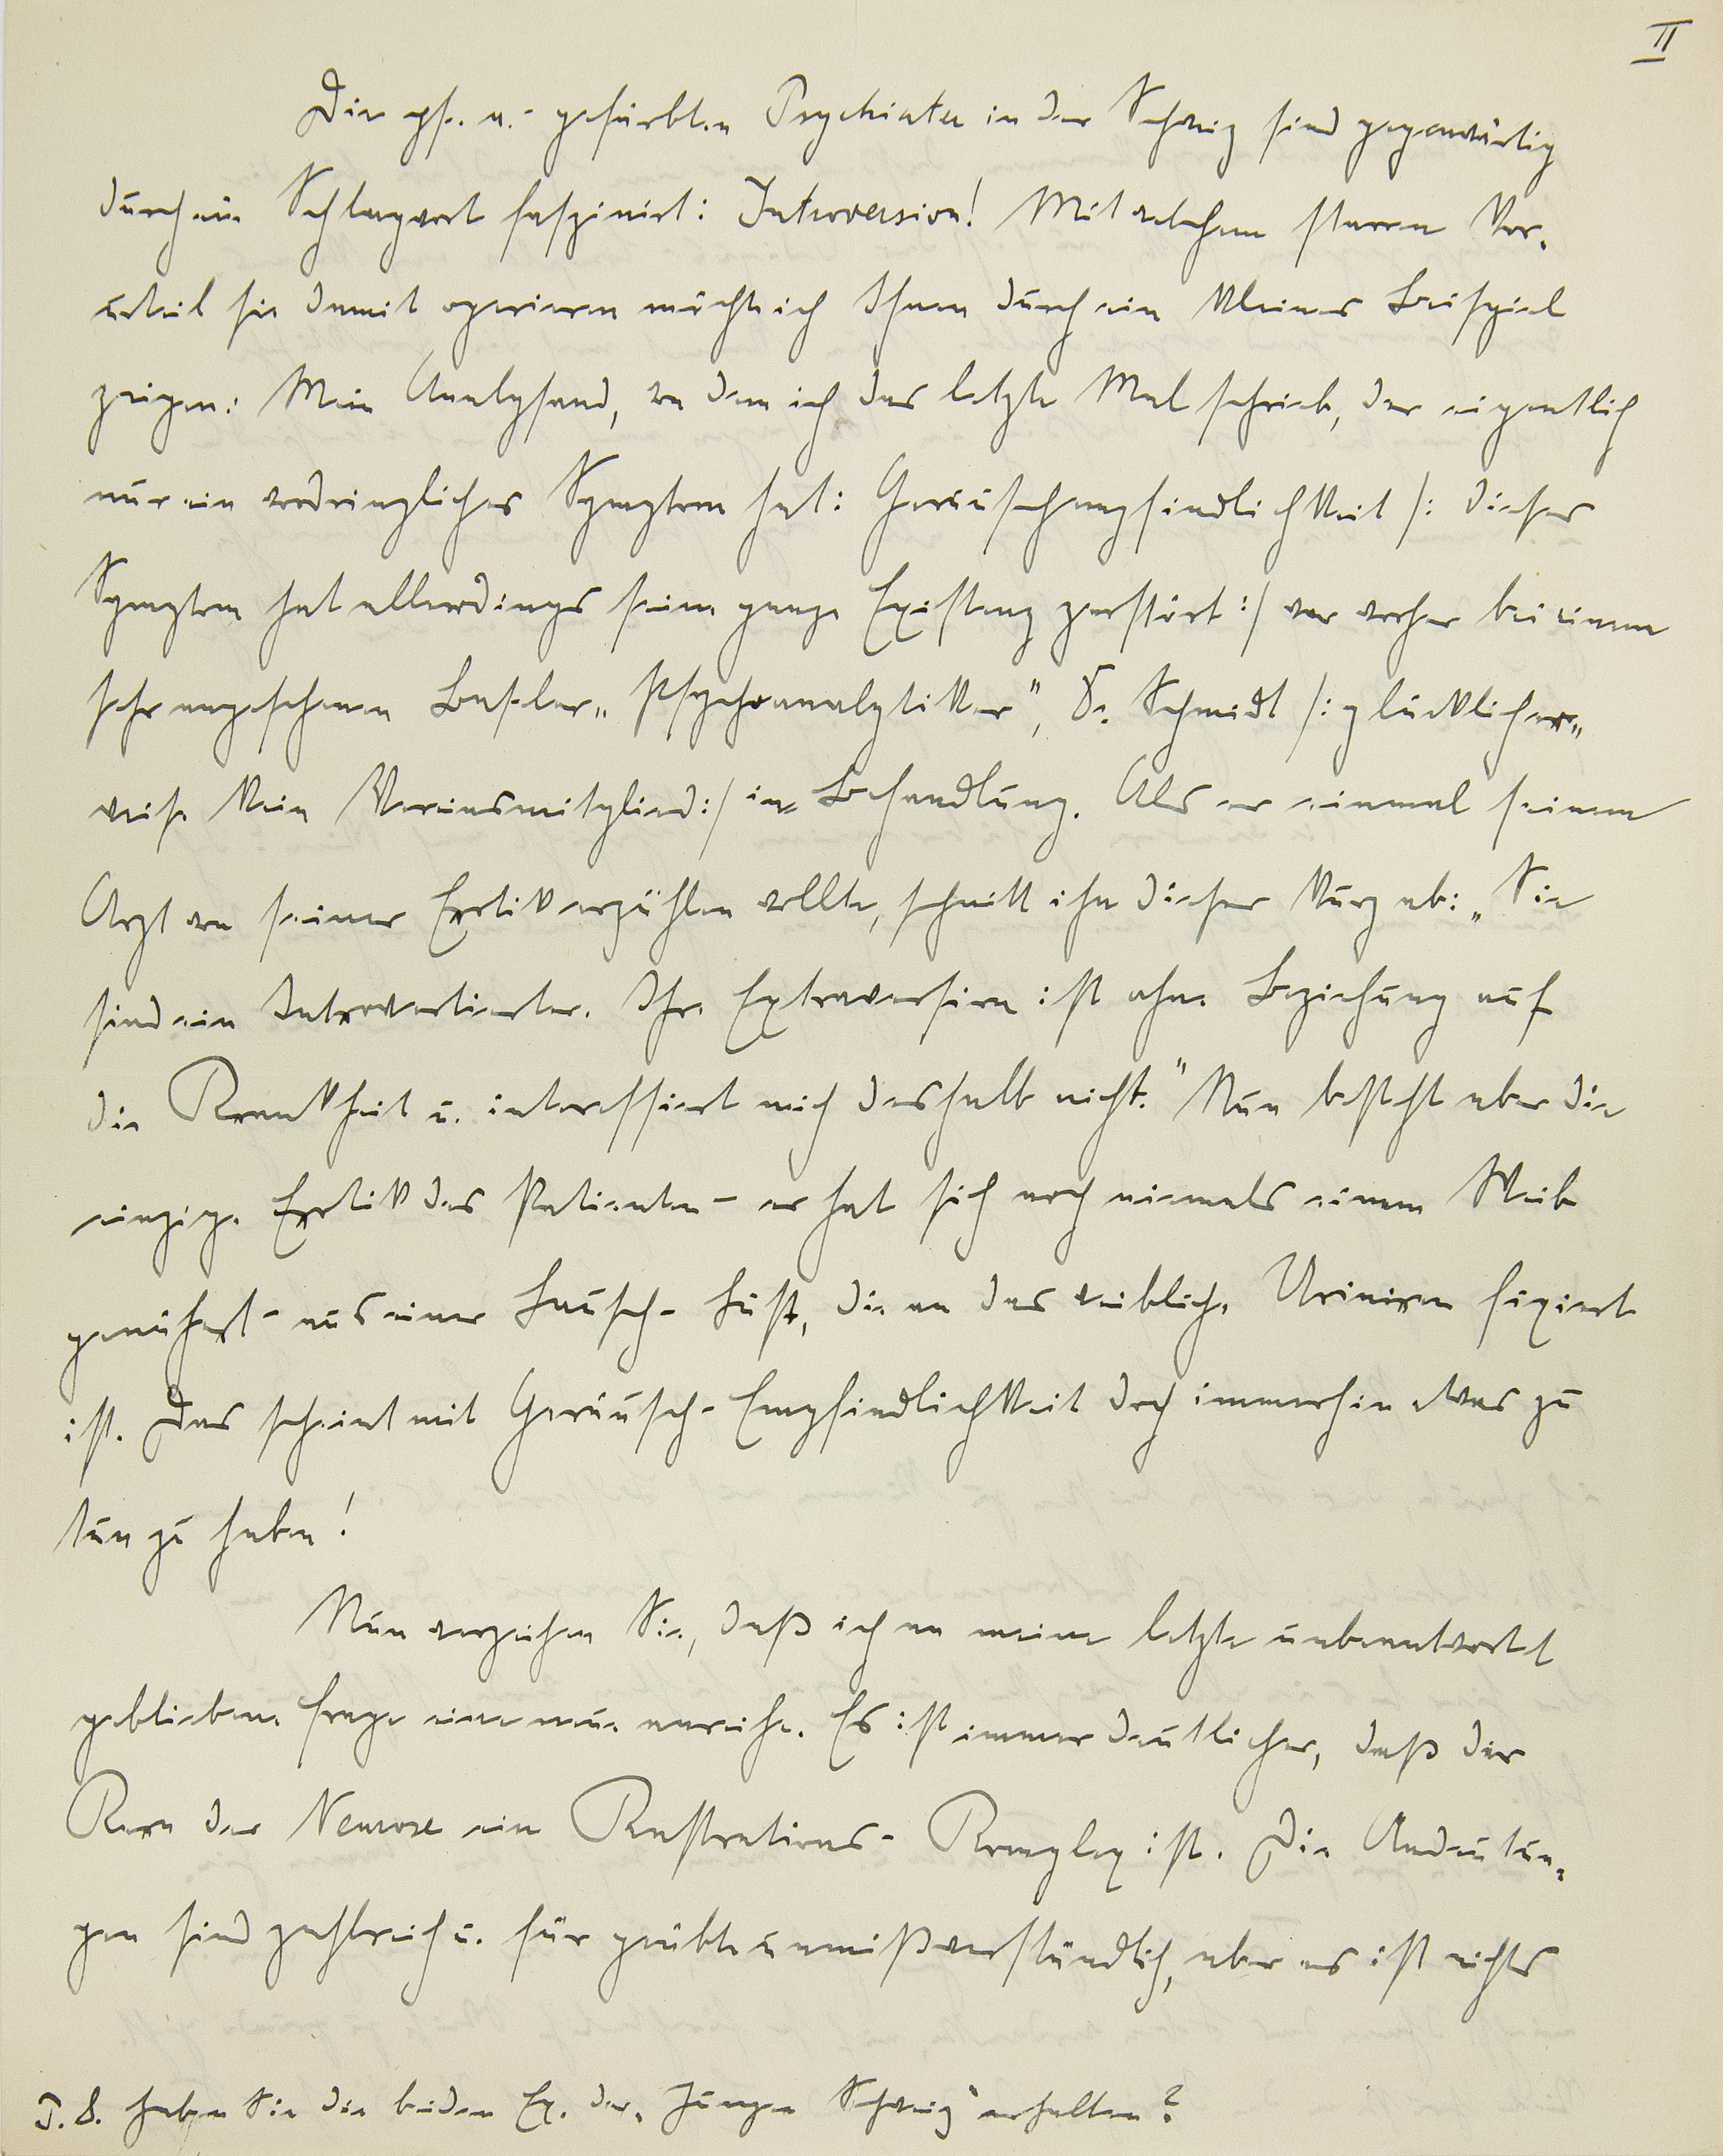 II
Die ps. a.- gefärbten Psychiater in der Schweiz sind gegenwärtig
durch ein Schlagwort fasziniert: Introversion! Mit welchem starren Vor-
urteil sie damit operieren möchte ich Ihnen durch ein kleines Beispiel
zeigen: Mein Analysand, von dem ich das letzte Mal schrieb, der eigentlich
nur ein vordringliches Symptom hat: Geräuschempfindlichkeit /: dieses
Symptom hat allerdings seine ganze Existenz zerstört :/ war vorher bei einem
sehr angesehenen Basler „Psychoanalytiker", Dr. Schmidt /: glücklicher-
weise kein Vereinsmitglied :/ in Behandlung. Als er einmal seinem
Arzt von seiner Erotik erzählen wollte, schnitt ihn dieser kurz ab: „Sie
sind ein Introvertierter. Ihre Extraversion ist ohne Beziehung auf
die Krankheit u. interessiert mich deshalb nicht." Nun besteht aber die
einzige Erotik des Patienten – er hat sich noch niemals einem Weibe
genähert – aus einer Lausch-Lust, die an das weibliche Urinieren fixiert
ist. Das scheint mit Geräusch-Empfindlichkeit doch immerhin etwas zu
tun zu haben!
Nun verzeihen Sie, daß ich an meine letzte unbeantwortet
gebliebene Frage eine neue anreihe. Es ist immer deutlicher, daß der
Kern der Neurose ein Kastrations-Komplex ist. Die Andeutun-
gen sind zahlreich u. für geübte unmißverständlich, aber es ist nichts
P.S. Haben Sie die beiden Ex. der „Jungen Schweiz" erhalten?